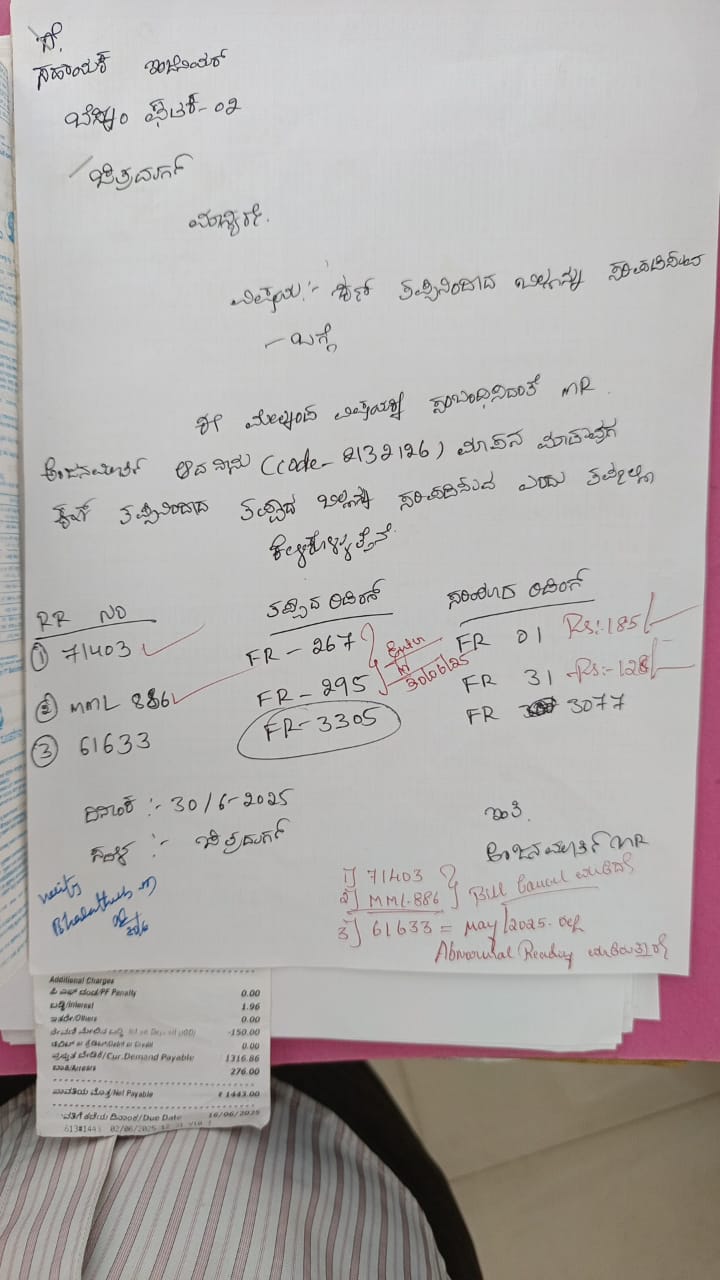 ಗೆ,
ಸಹಾಯಕ ಇಂಜಿನಿಯರ್
ಬೆಸ್ಕಾಂ ಘಟಕ-02
ಚಿತ್ರದುರ್ಗ
ಮಾನ್ಯರೇ.
ವಿಷಯ:- ಕೈ ತಪ್ಪಿನಿಂದಾದ ಬಿಲ್ಲನ್ನು ಸರಿಪಡಿಸುವ
- ಬಗ್ಗೆ
ಈ ಮೇಲ್ಕಂಡ ವಿಷಯಕ್ಕೆ ಸಂಬಂಧಿಸಿದಂತೆ MR.
ಆಂಜನಮೂರ್ತಿ ಆದ ನಾನು (Code-2132126) ಮಾಪನ ಮಾಡುವಾಗ
ತಪ್ಪಿನಿಂದಾದ ತಪ್ಪಾದ ಬಿಲ್ಲನ್ನು ಸರಿಪಡಿಸುವ ಎಂದು ತಮ್ಮಲ್ಲಿ
ಕೇಳಿಕೊಳ್ಳುತ್ತೇನೆ.
RR NO ತಪ್ಪಾದ ರಿಡಿಂಗ್ ಸರಿಯಾದ ರಿಡಿಂಗ್
① 71403 FR - 267 FR 01 Rs:-185/-
② MML 886 FR - 295 FR 31 Rs:-128/-
30/06/25
③ 61633 FR-3305 FR 3077
ದಿನಾಂಕ :- 30/6-2025
ಸ್ಥಳ :- ಚಿತ್ರದುರ್ಗ
ಇಂತಿ.
ಆಂಜನಮೂರ್ತಿ MR
1) 71403
2) MML-886 Bill Cancel ಮಾಡಿದೆ
3) 61633 = May/2025. ರಲ್ಲಿ
Abnormal Reading
Additional Charges
ಪಿ ಎಫ್ ದಂಡ/PF Penalty 0.00
ಬಡ್ಡಿ/Interest 1.96
ಇತರೇ/Others 0.00
-150.00
0.00
ಪ್ರಸ್ತುತ ಬೇಡಿಕೆ/Cur.Demand Payable 1316.86
ಬಾಕಿ/Arrears 276.00
ಪಾವತಿಯ ಮೊತ್ತ/Net Payable ₹ 1443.00
ಪಾವತಿಗೆ ಕಡೆಯ ದಿನಾಂಕ/Due Date 16/06/2025
613#1443 02/06/2025